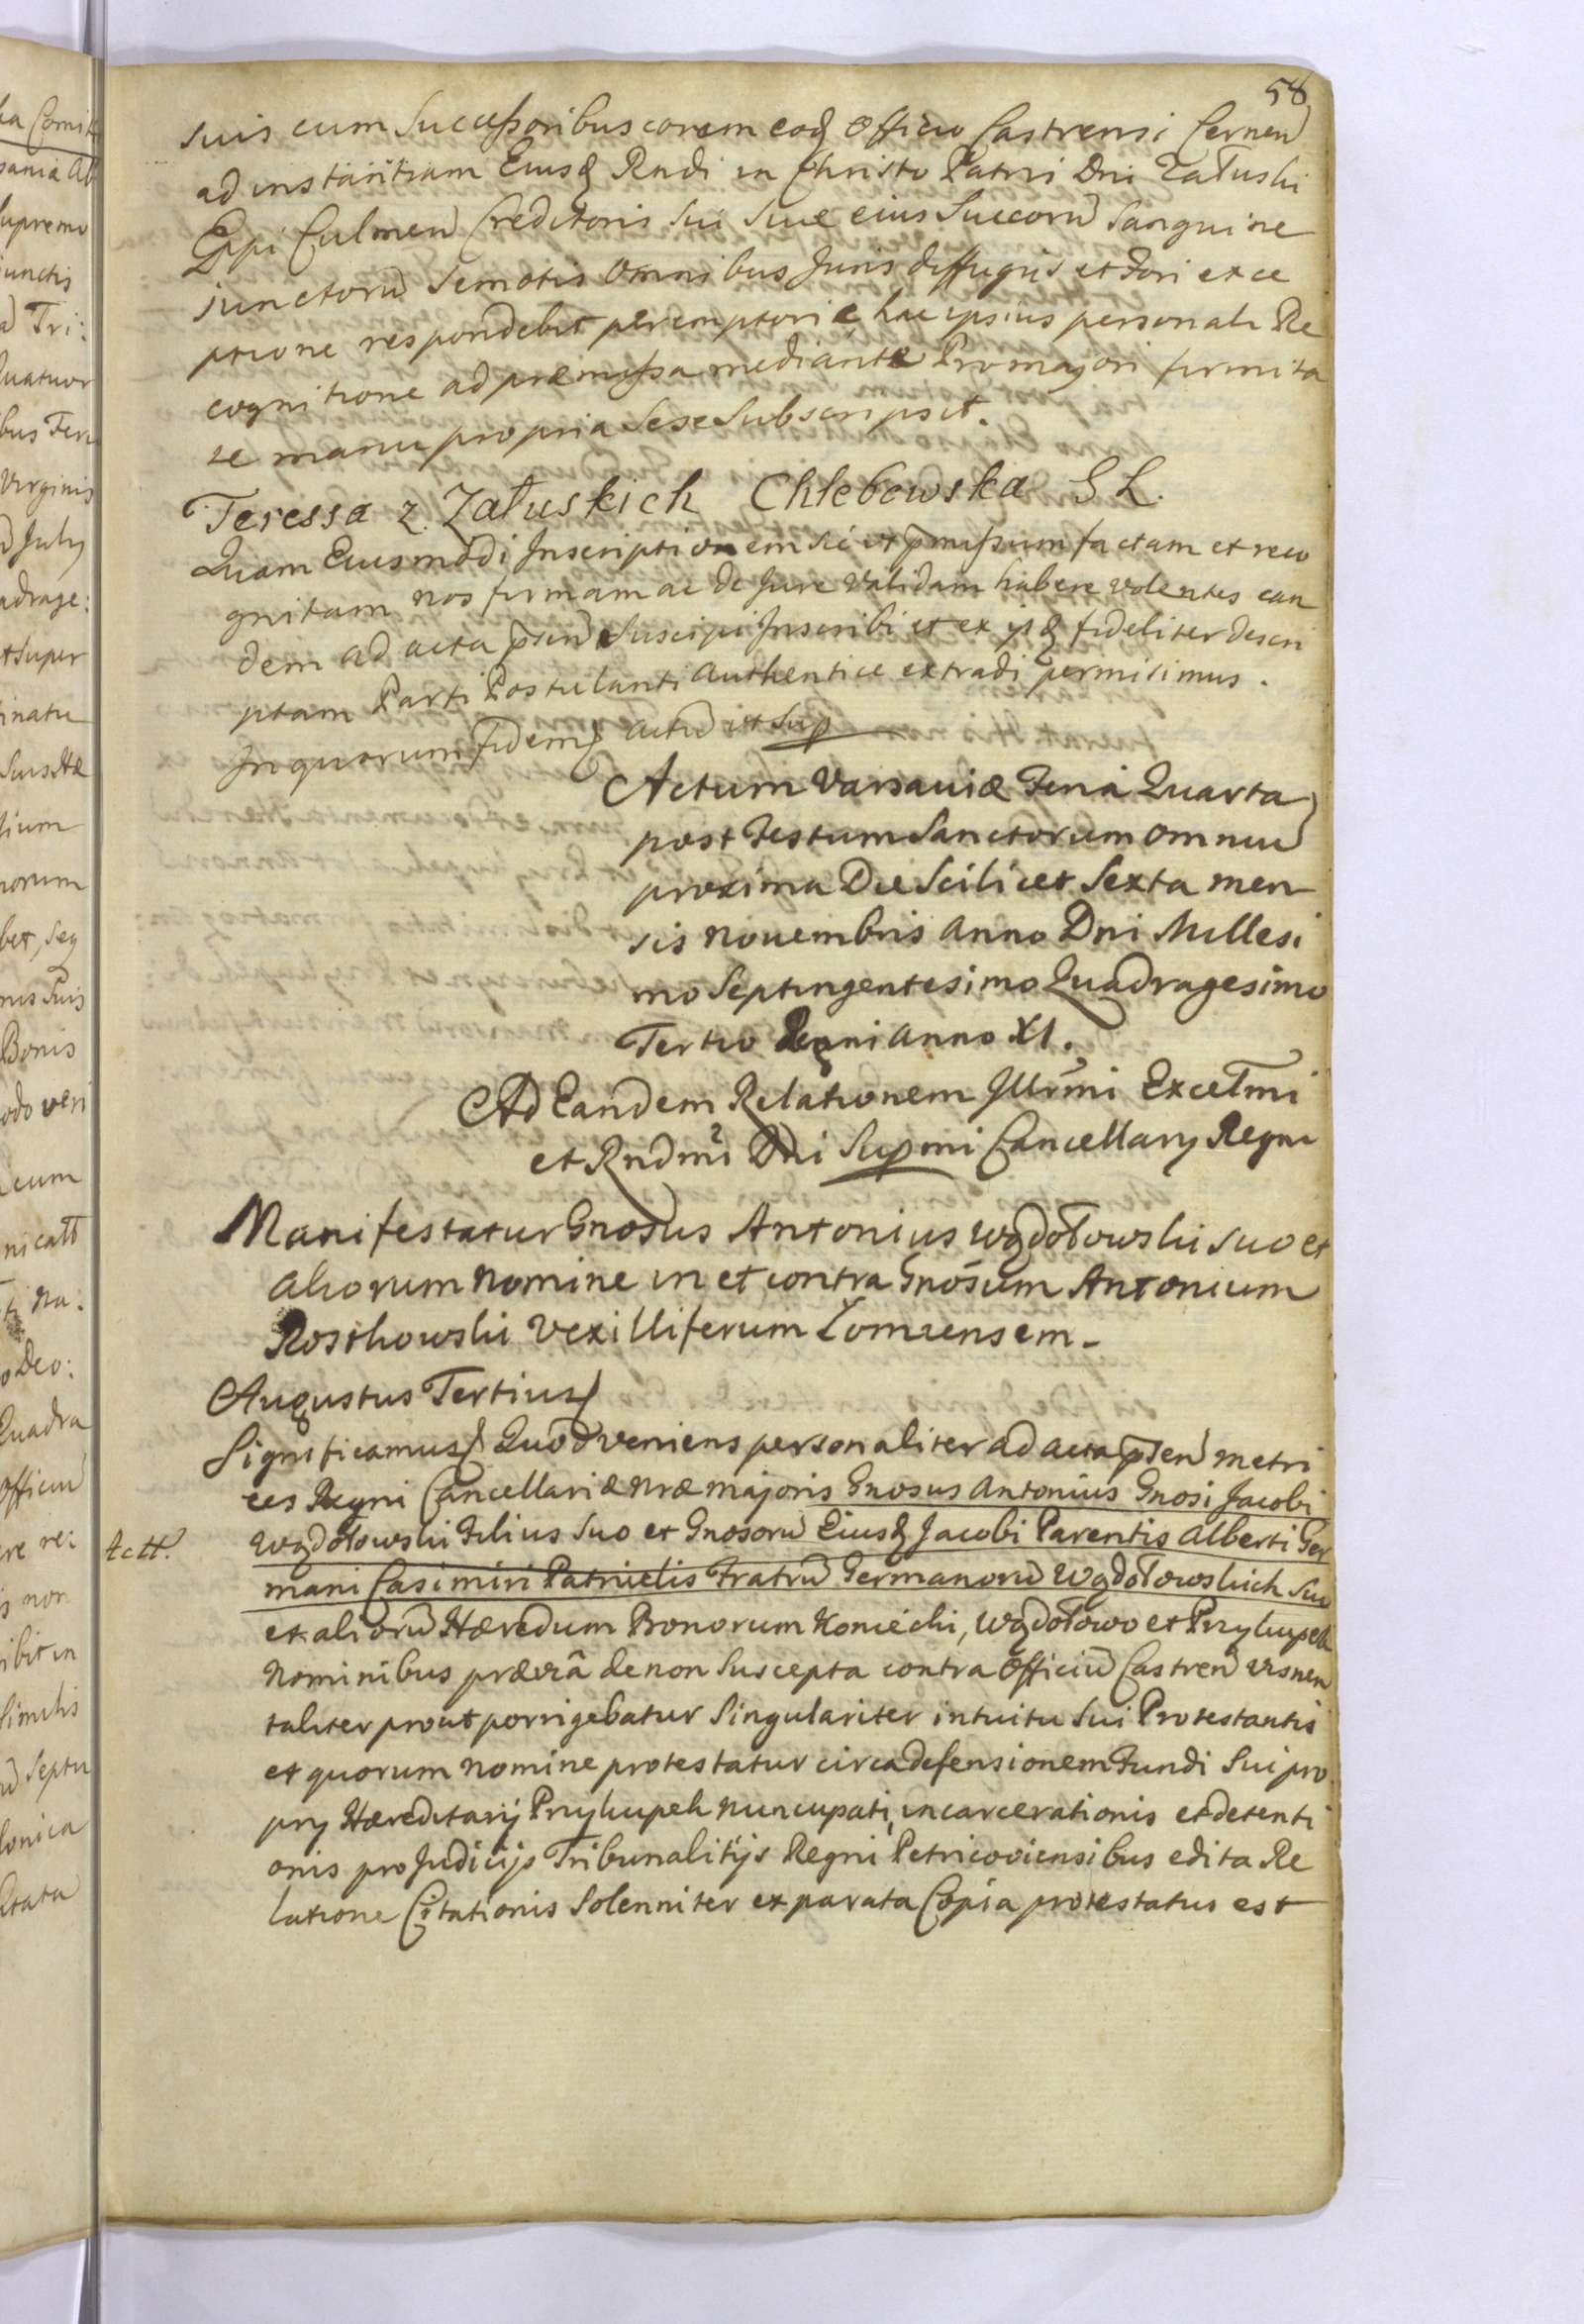 58
suis cum Successoribus coram eodq Officio Castrensi Cernen
ad instantiam Eiusq Rndi in Christo Patris Dni Załuski
Eppi Culmen Creditoris sui sive eius Succorū Sanguine
junctorū Semotis Omnibus Juris diffugijs et Fori exce
ptione respondebit peremptorie hac ipsius personali Re
cognitione ad præmissa mediante Pro majori firmita
te manu propria Sese Subscripsit.
Teressa z Załuskich Chlebowska S L.
Quam Eiusmodi Inscriptionem sic ut pmissum factam et reco
gnitam nos firmam ac de Jure validam habere volentes ean
dem ad acta psen Suscipi Inscribi et ex ijsq fideliter descri
ptam Parti Postulanti authentice extradi permisimus.
In quorum fidem actū ut Sup
Actum Varsaviæ Feria Quarta
post Festum Sanctorum omniū
proxima Die Scilicet Sexta men
sis Novembris Anno Dni Millesi
mo Septingentesimo Quadragesimo
Tertio Regni anno XI.
Ad Eandem Relationem Illrmi Excellmi
et Rndmi Dni Supmi Cancellarij Regni
Manifestatur Gnosus Antonius Wądołowski suo et
aliorum Nomine in et contra Gnosum Antonium
Rostkowski Vexilliferum Łomzensem.
Augustus Tertius
Significamus Quod veniens personaliter ad acta psen metri
ces Regni Cancellariæ nræ majoris Gnosus Antonius Gnosi Jacobi
Wądołowski Filius Suo et Gnosorū Eiusq Jacobi Parentis Alberti Ger
mani Casimiri Patruelis Fratrū Germanorū Wądołowskich Suo
et aliorū Hæredum Bonorum Koniecki, Wądołowo et Przykupek
Nominibus prævia de non Suscepta contra Officiū Castren Visnen
taliter prout porrigebatur Singulariter intuitu Sui Protestantis
et quorum nomine protestatur circa defensionem Fundi Sui pro
prij Hæreditarij Przykupek nuncupati, incarcerationis et detenti
onis pro Judicijs Tribunalitijs Regni Petricoviensibus edita Re
latione Citationis Solenniter ex parata Copia protestatus est
Actt.